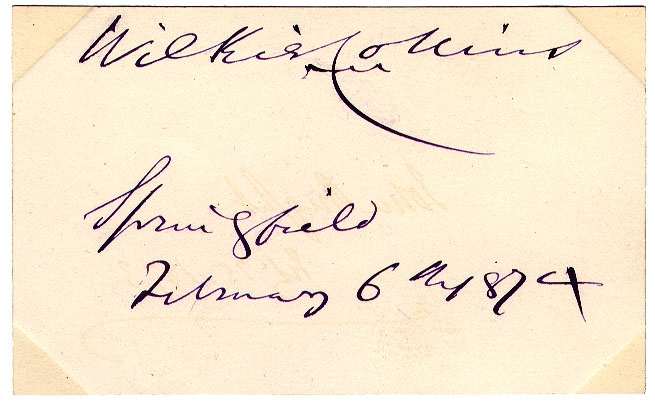 Wilkie Collins
Springfield
February 6th 1874